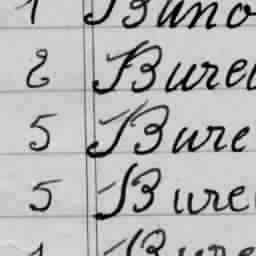 1 Buno
2 Bure
5 Bure
5 Bure
1 Bure